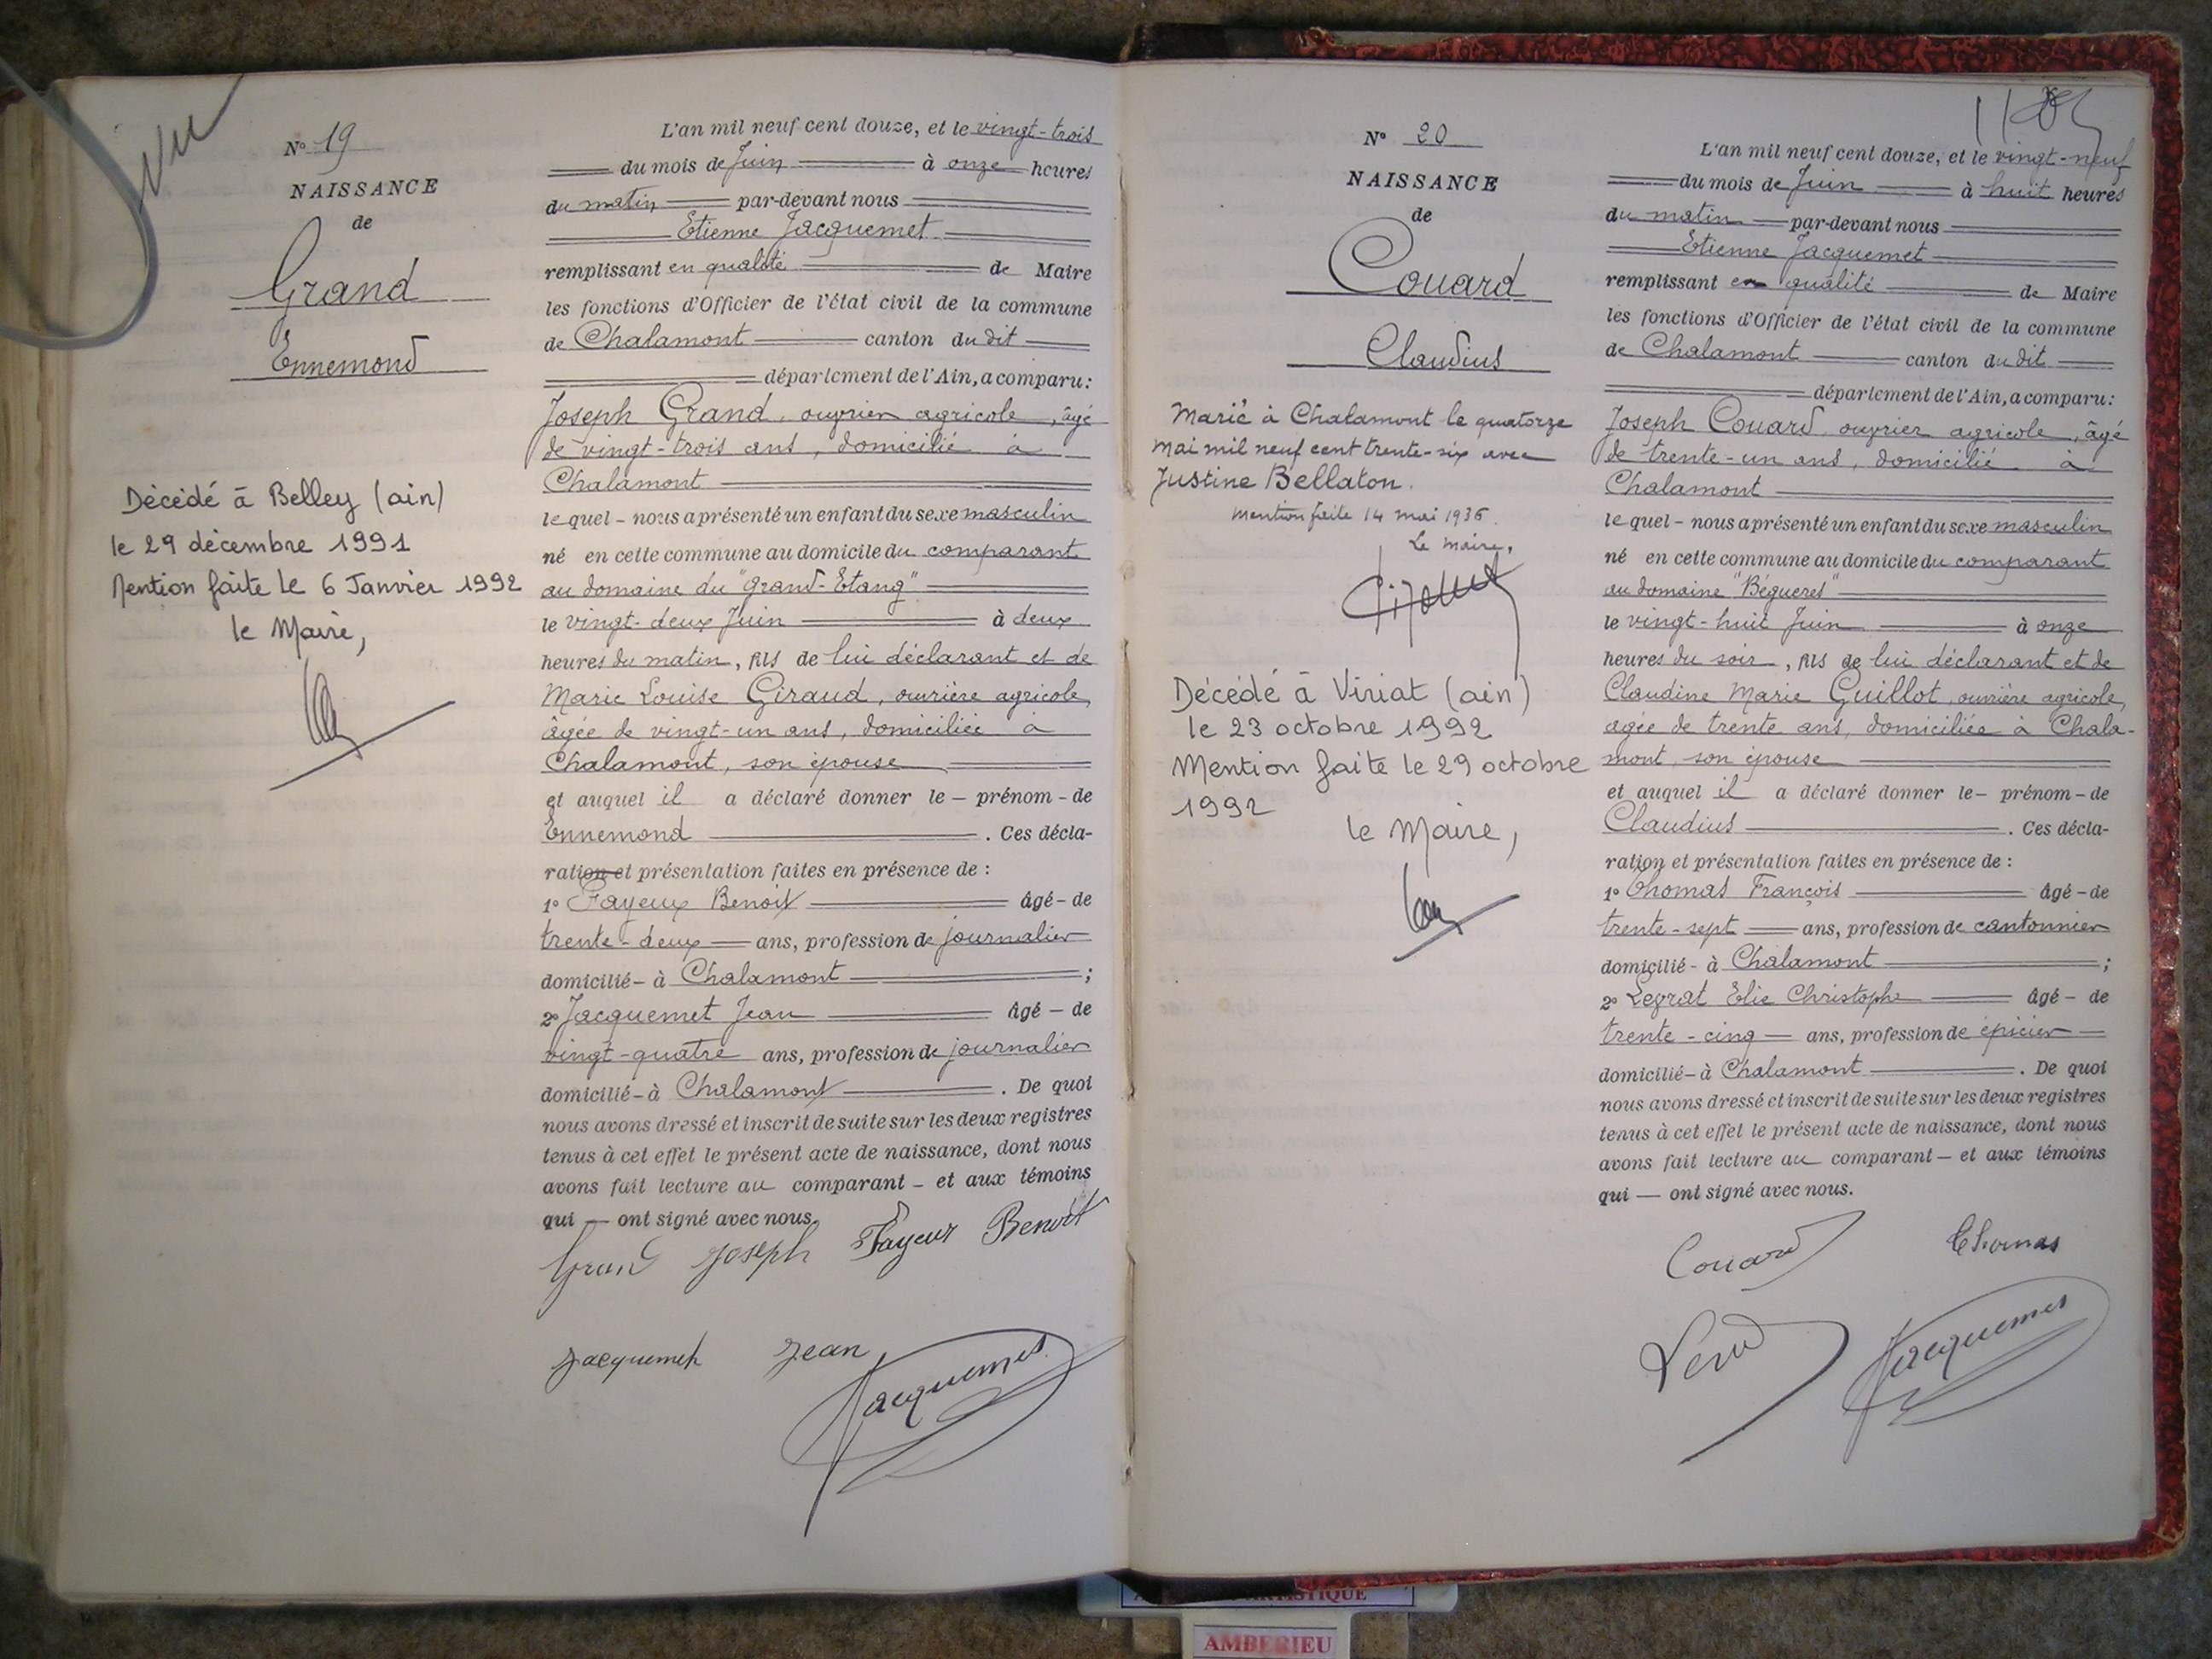 Vu
N° 19
NAISSANCE
de
Grand
Ennemond
Décédé à Belley (ain)
le 29 décembre 1991
Mention faite le 6 Janvier 1992
le Maire,
L'an mil neuf cent douze, et le vingt-trois
du mois de Juin à onze heures
du matin par-devant nous
Etienne Jacquemet
remplissant en qualité de Maire
les fonctions d'Officier de l'état civil de la commune
de Chalamont canton du dit
département de l'Ain, a comparu:
Joseph Grand, ouvrier agricole, âgé
de vingt-trois ans, domicilié à
Chalamont
lequel - nous a présenté un enfant du sexe masculin
né en cette commune au domicile du comparant
au domaine du "Grand-Etang"
le vingt-deux Juin à deux
heures du matin, fils de lui déclarant et de
Marie Louise Giraud, ouvrière agricole,
âgée de vingt-un ans, domiciliée à
Chalamont, son épouse
et auquel il a déclaré donner le - prénom - de
Ennemond . Ces décla-
ration et présentation faites en présence de :
1° Fayeux Benoit âgé - de
trente-deux ans, profession de journalier
domicilié - à Chalamont ;
2° Jacquemet Jean âgé - de
vingt-quatre ans, profession de journalier
domicilié - à Chalamont . De quoi
nous avons dressé et inscrit de suite sur les deux registres
tenus à cet effet le présent acte de naissance, dont nous
avons fait lecture au comparant - et aux témoins
qui - ont signé avec nous.
Grand Joseph Fayeux Benoit
Jacquemet Jean
Jacquemet
N° 20
NAISSANCE
de
Couard
Claudius
Marié à Chalamont le quatorze
mai mil neuf cent trente-six avec
Justine Bellaton.
Mention faite 14 mai 1936.
Le Maire,
Décédé à Viriat (ain)
le 23 octobre 1992
Mention faite le 29 octobre
1992
le Maire,
L'an mil neuf cent douze, et le vingt-neuf
du mois de Juin à huit heures
du matin par-devant nous
Etienne Jacquemet
remplissant en qualité de Maire
les fonctions d'Officier de l'état civil de la commune
de Chalamont canton du dit
département de l'Ain, a comparu:
Joseph Couard ouvrier agricole, âgé
de trente-un ans, domicilié à
Chalamont
lequel - nous a présenté un enfant du sexe masculin
né en cette commune au domicile du comparant
au domaine "Bégueres"
le vingt-huit Juin à onze
heures du soir, fils de lui déclarant et de
Claudine Marie Guillot, ouvrière agricole,
agée de trente ans, domiciliée à Chala-
mont, son épouse
et auquel il a déclaré donner le - prénom - de
Claudius . Ces décla-
ration et présentation faites en présence de :
1° Thomas François âgé - de
trente-sept ans, profession de cantonnier
domicilié - à Chalamont ;
2° Leyrat Elie Christophe âgé - de
trente-cinq ans, profession de épicier
domicilié - à Chalamont . De quoi
nous avons dressé et inscrit de suite sur les deux registres
tenus à cet effet le présent acte de naissance, dont nous
avons fait lecture au comparant - et aux témoins
qui - ont signé avec nous.
Couard Thomas
Jacquemet
AMBERIEU